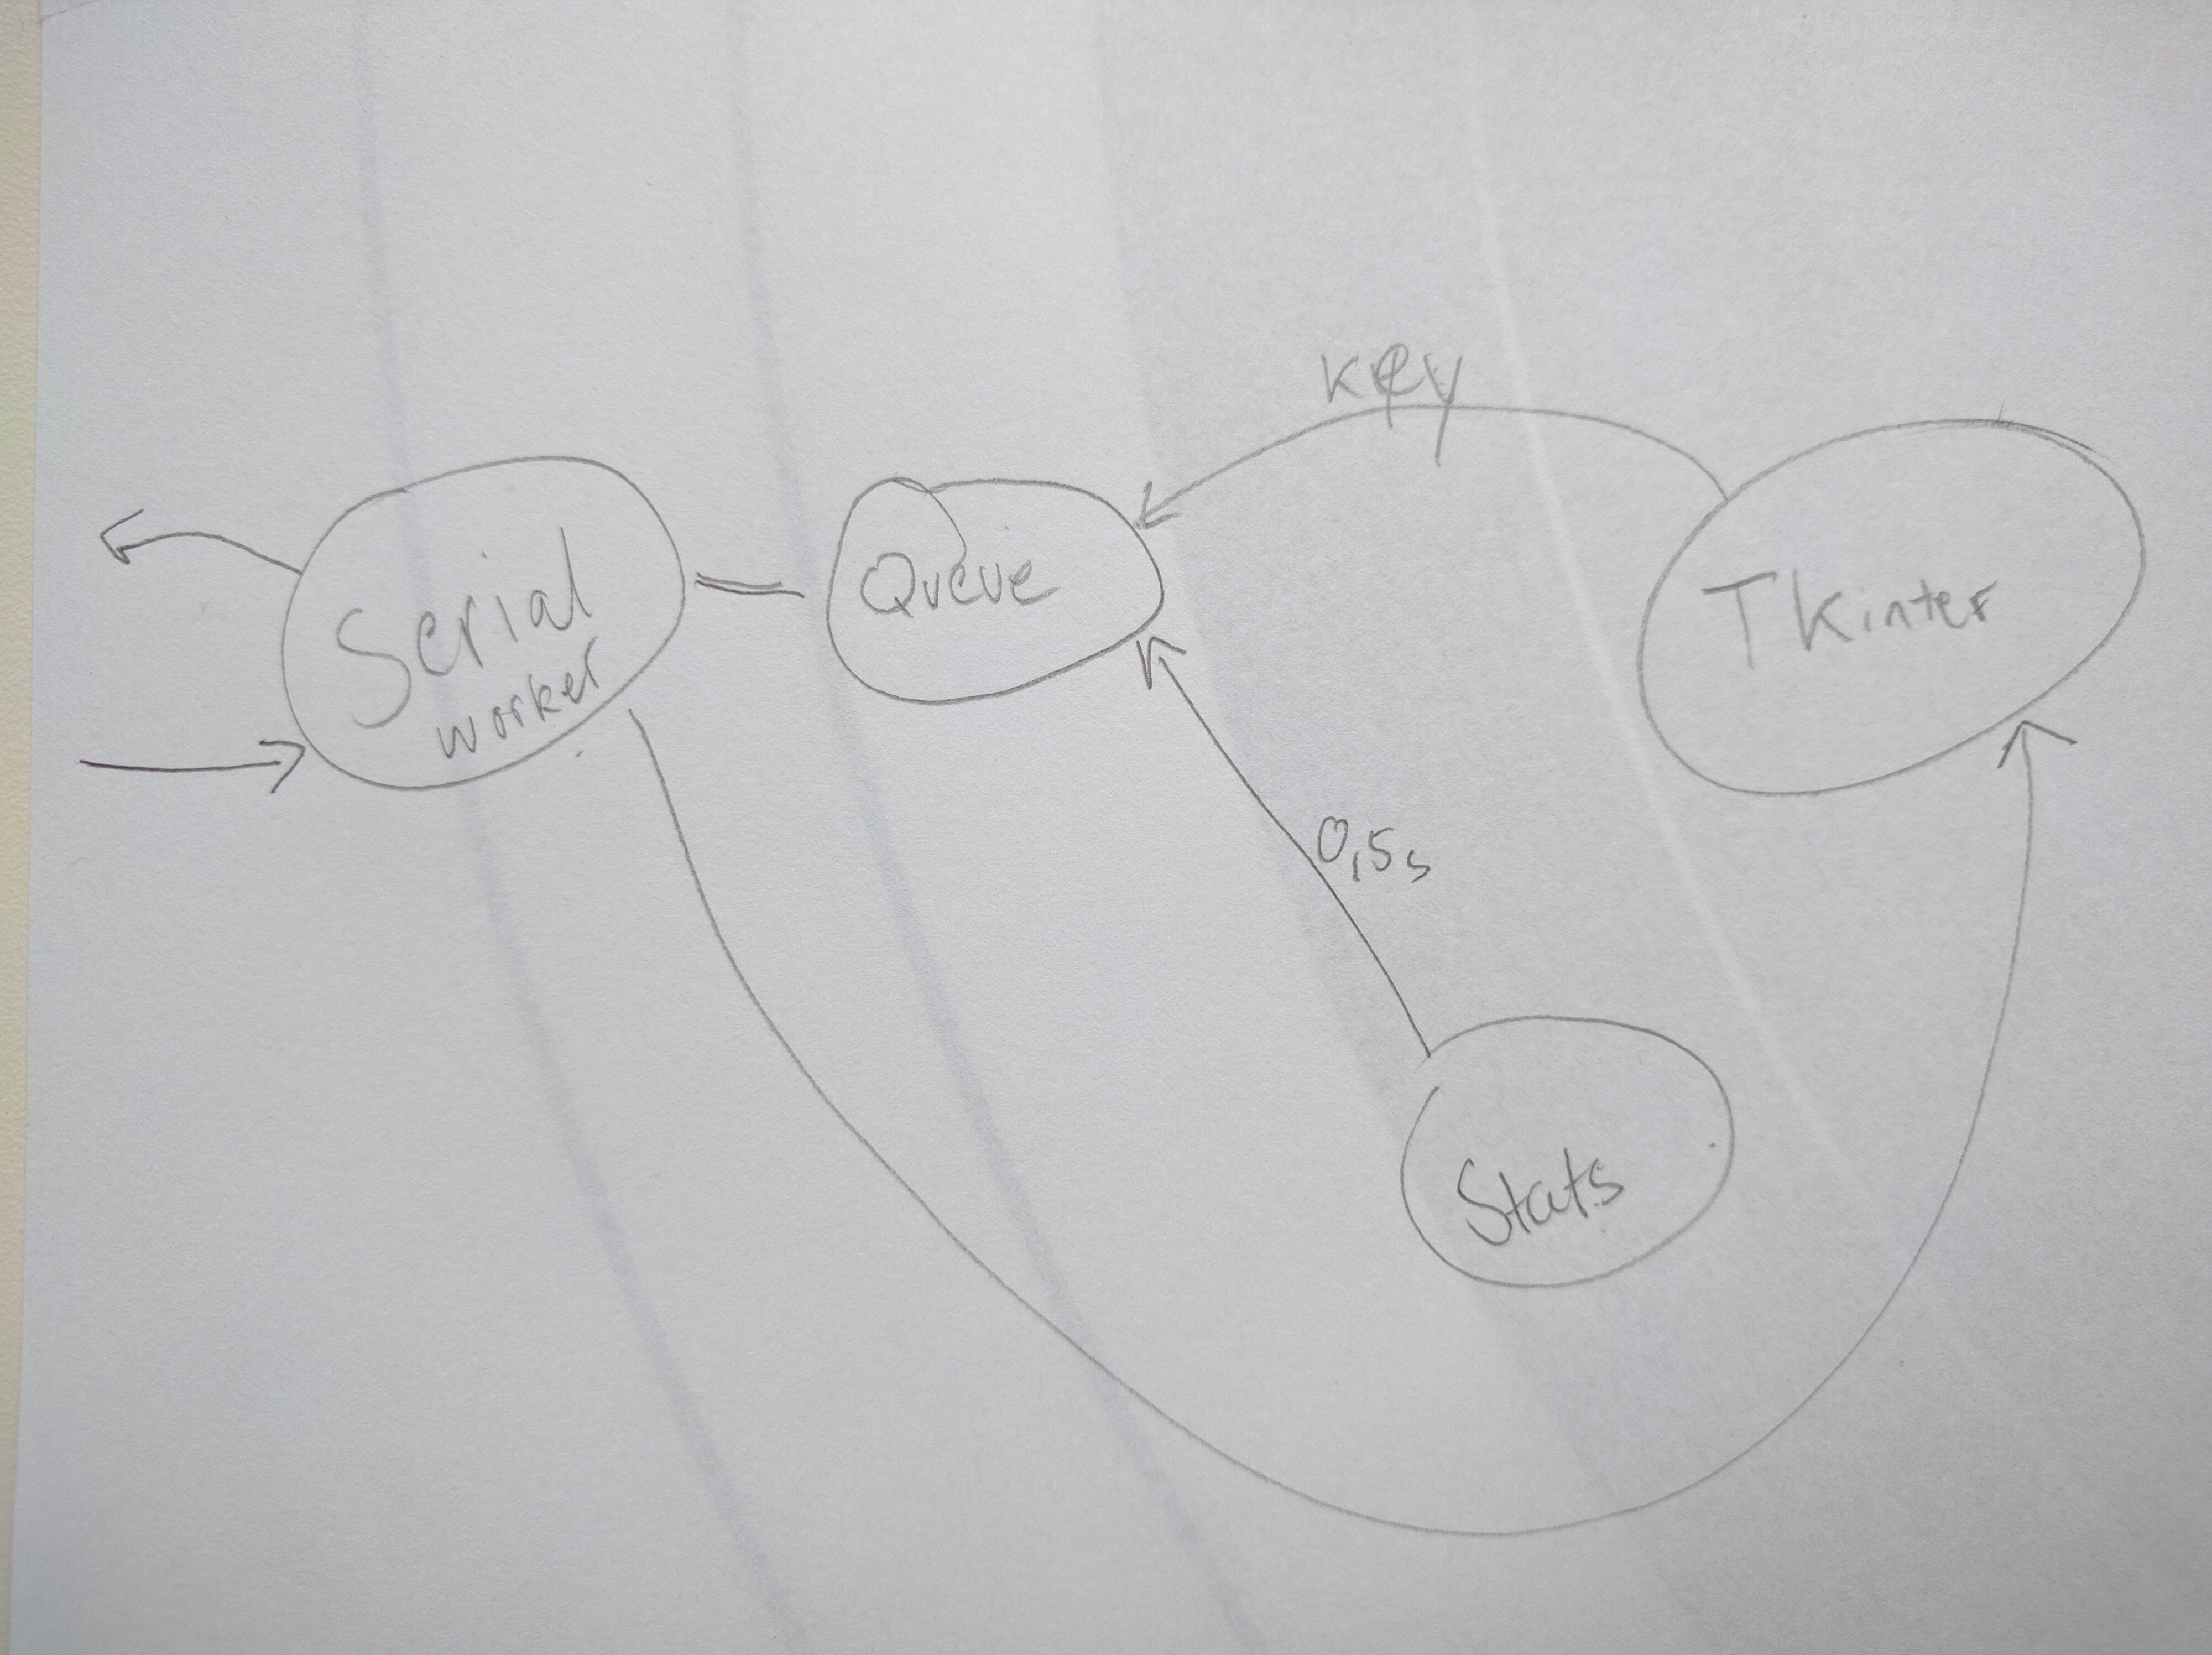 key
Serial
worker
Queue
Tkinter
0,5s
Stats